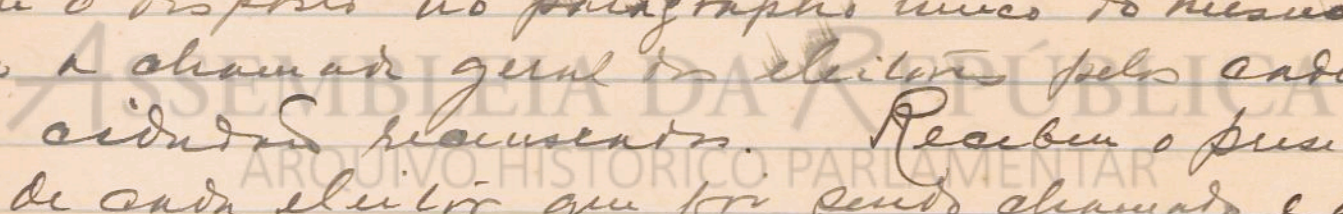 o disposto no paragrapho unico do mesmo
a chamada geral dos eleitores pelos cade
cidadãos recenseados. Recebeu o presi
de cada eleitor que foi sendo chamado e
ASSEMBLEIA DA REPÚBLICA
ARQUIVO HISTÓRICO PARLAMENTAR